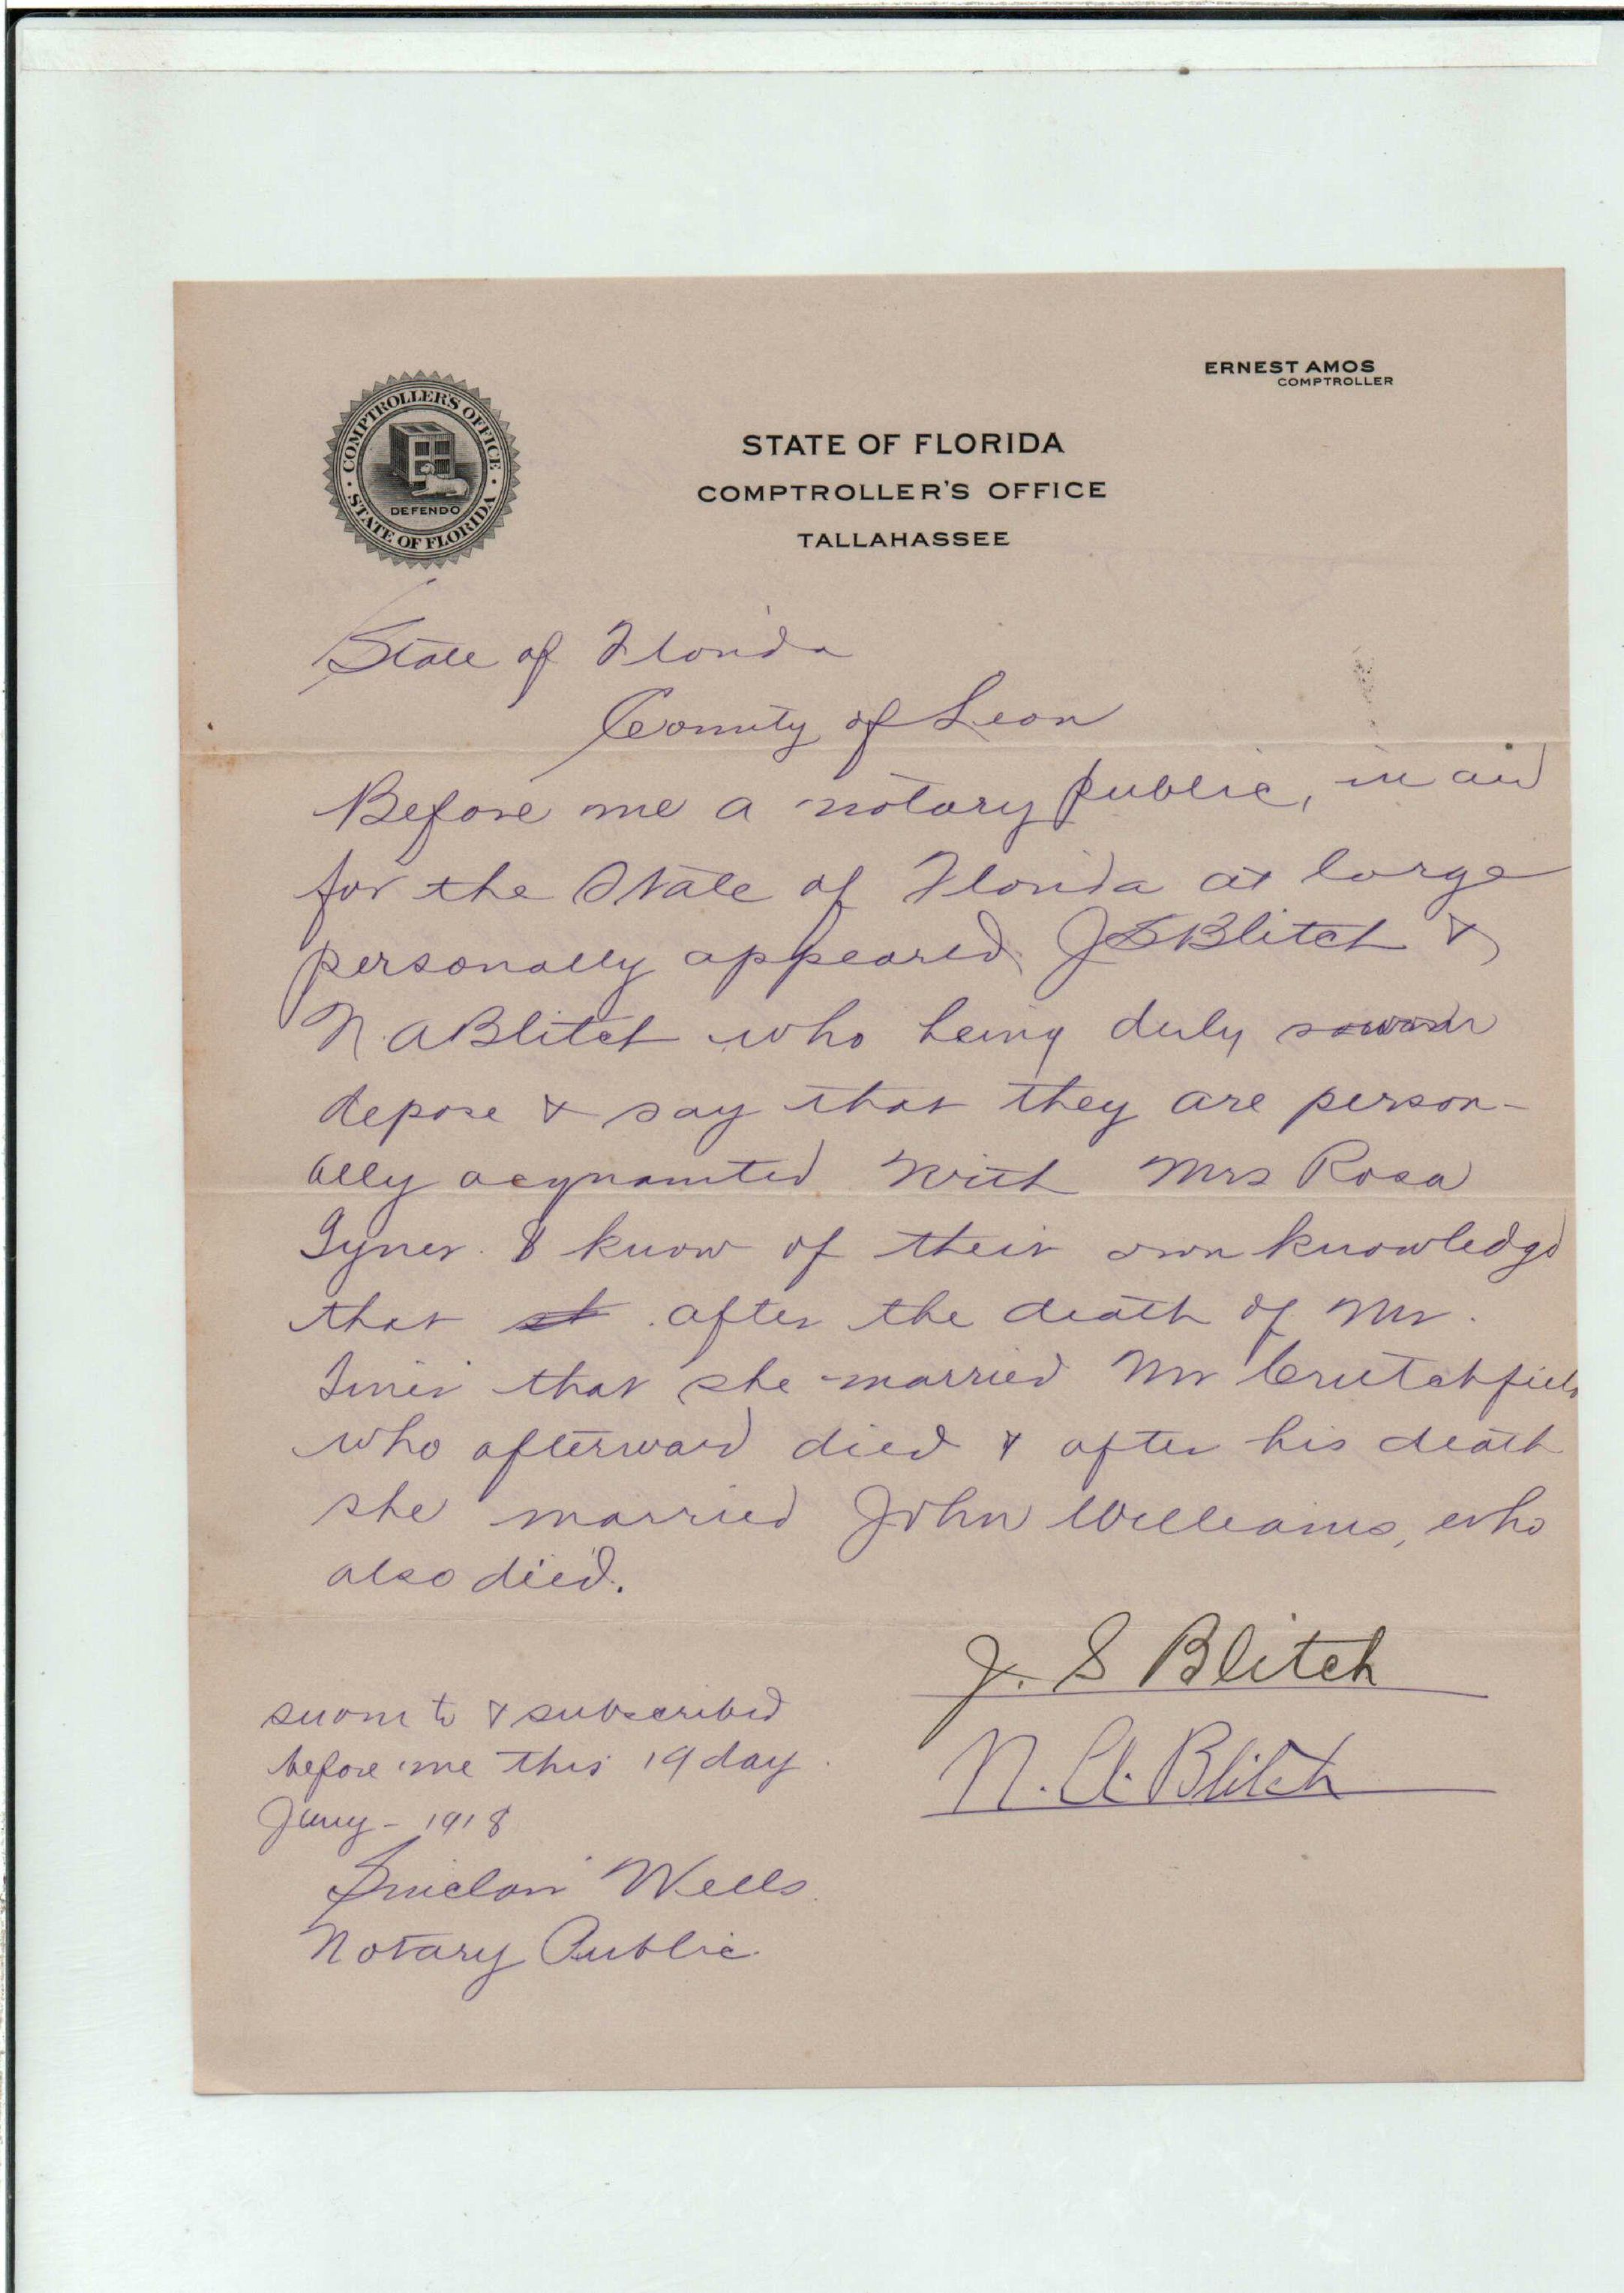 COMPTROLLER'S OFFICE
DEFENDO
STATE OF FLORIDA
ERNEST AMOS
COMPTROLLER
STATE OF FLORIDA
COMPTROLLER'S OFFICE
TALLAHASSEE
State of Florida
County of Leon
Before me a notary public, in and
for the State of Florida at large
personally appeared J S Blitch &
N. A Blitch who being duly
depose & say that they are person-
ally acquainted with Mrs Rosa
& know of their own knowledge
that after the death of Mr.
that she married Mr Crutchfield
who afterward died & after his death
she married John Williams, who
also died.
J. S Blitch
N. A. Blitch
sworn to & subscribed
before me this 19 day
1918
Wells
Notary Public